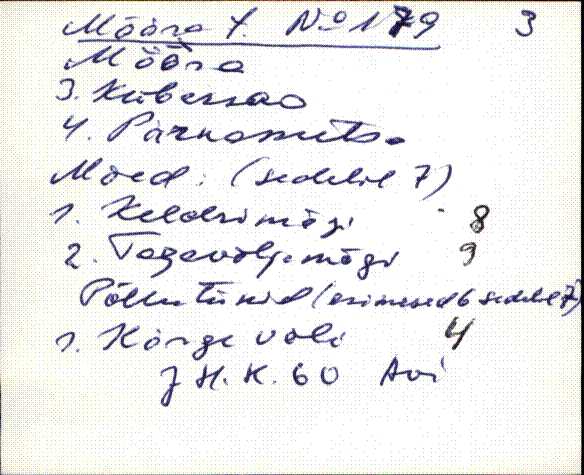 Mõõra t. No 179 3
Mõõra
3. Kübersoo
4. Pärnamets.
Mäed: (sedelil 7)
1. Keldrimägi 8
2. Tagaväljamägi 9
Põllutükid (esimesed 6 sedelil 7)
1. Kõrgeväli 4
J H. K. 60 Avi